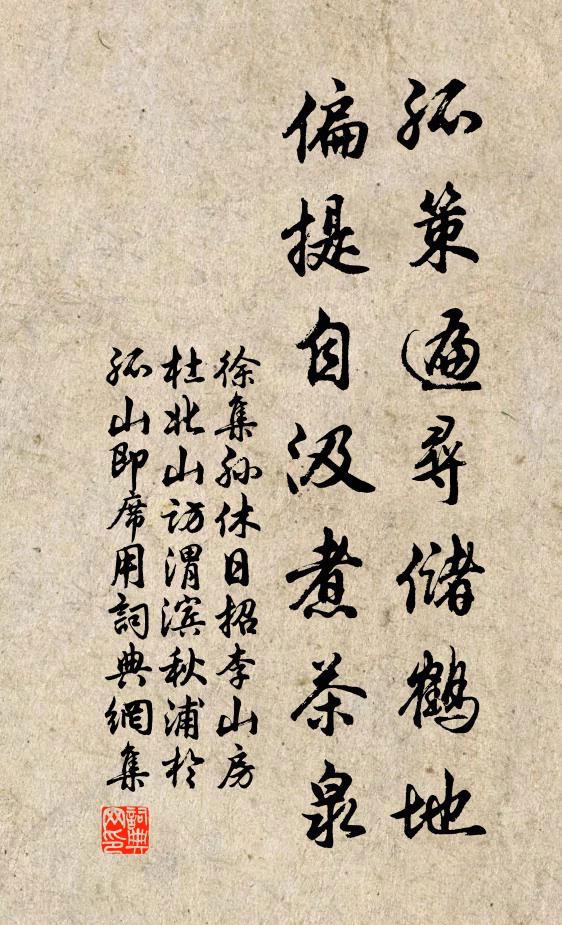 孤策遍尋儲鶴地
偏提自汲煮茶泉
徐集孙休日招李山房
杜北山訪渭滨秋浦於
孤山即席用詞典網集
詞典
网印